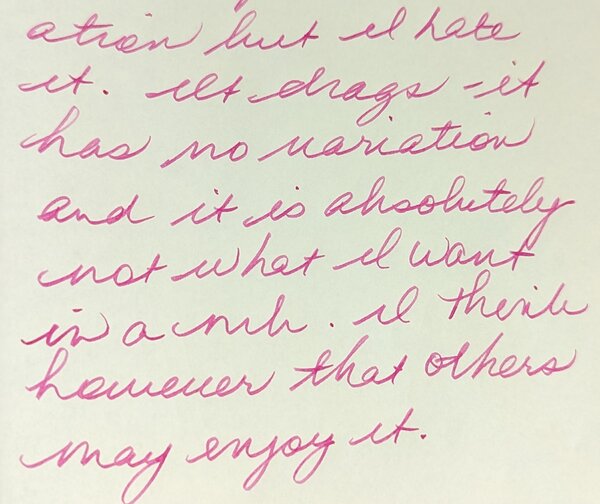 ation but I hate
it. It drags - it
has no variation
and it is absolutely
not what I want
in a nib. I think
however that others
may enjoy it.